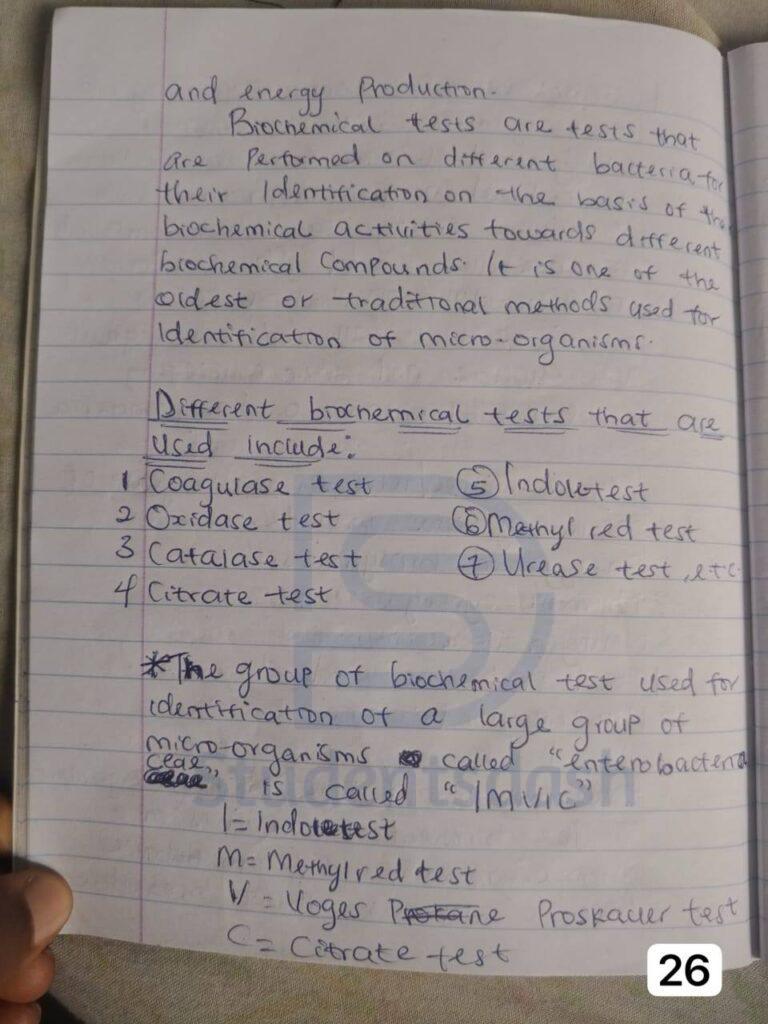 and energy Production.
Biochemical tests are tests that
are Performed on different bacteria for
their Identification on the basis of the
biochemical activities towards different
biochemical Compounds. It is one of the
oldest or traditional methods used for
Identification of micro-organisms.
Different biochemical tests that are
used include:
1 Coagulase test
2 Oxidase test
3 Catalase test
4 Citrate test
5 Indole test
6 Methyl red test
7 Urease test, etc.
*The group of biochemical test used for
identification of a large group of
micro-organisms called "enterobacteria
ceae" is called "IMVIC"
I = Indole test
M = Methyl red test
V = Voges Proskauer test
C = Citrate test
Studentsdash
26